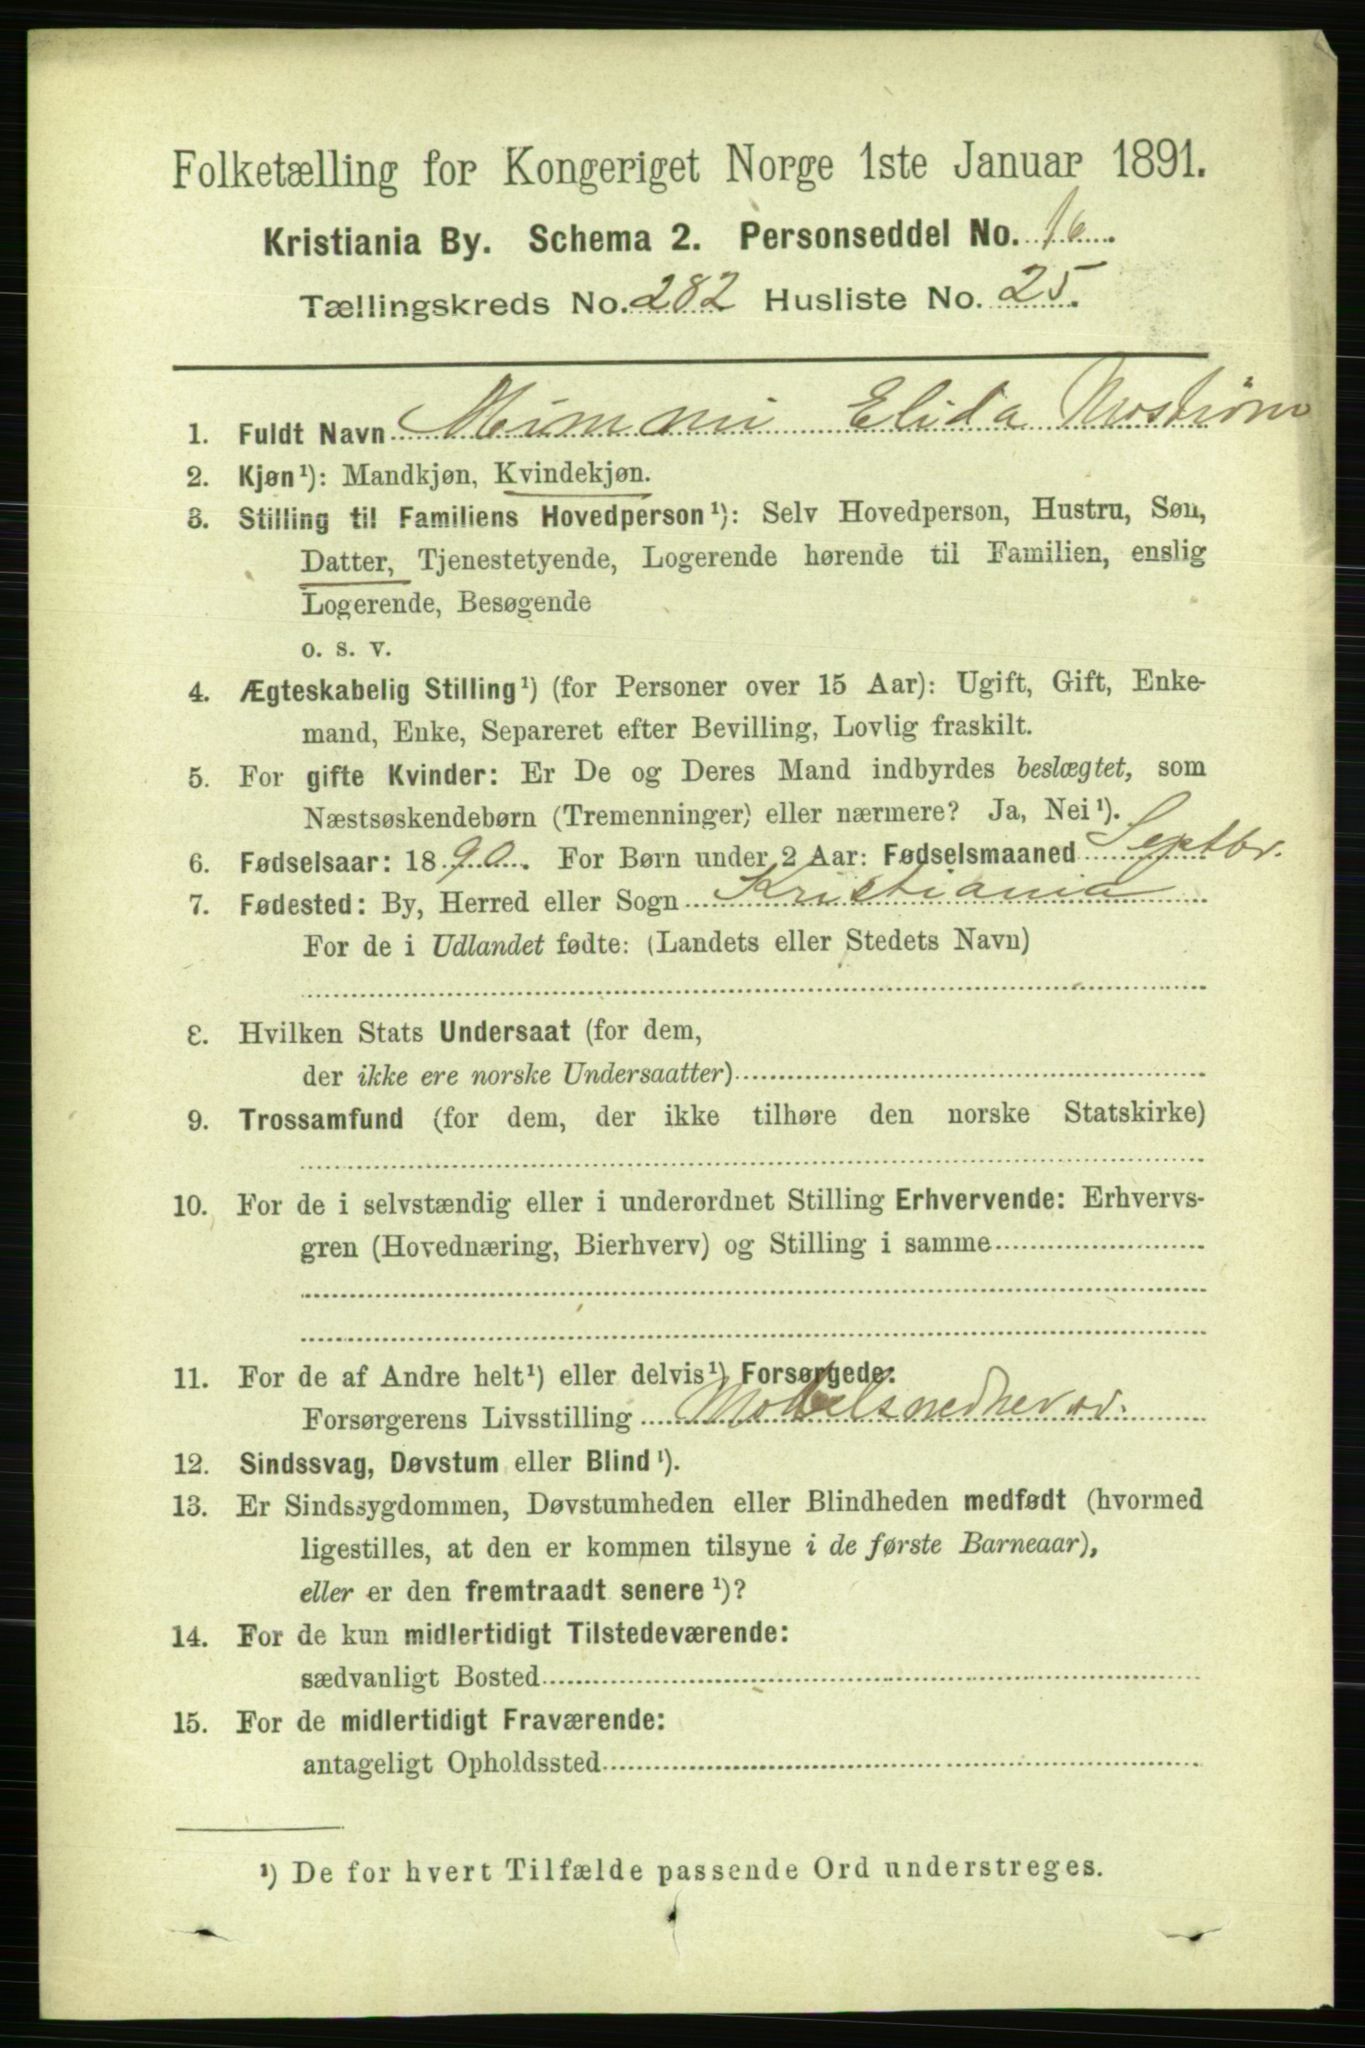 Folketælling for Kongeriget Norge 1ste Januar 1891.
Kristiania By. Schema 2. Personseddel No. 16.
Tællingskreds No. 282 Husliste No. 25.
1. Fuldt Navn Mimmi Elida
2. Kjøn¹): Mandkjøn, Kvindekjøn.
3. Stilling til Familiens Hovedperson¹): Selv Hovedperson, Hustru, Søn,
Datter, Tjenestetyende, Logerende hørende til Familien, enslig
Logerende, Besøgende
o. s. v.
4. Ægteskabelig Stilling¹) (for Personer over 15 Aar): Ugift, Gift, Enke-
mand, Enke, Separeret efter Bevilling, Lovlig fraskilt.
5. For gifte Kvinder: Er De og Deres Mand indbyrdes beslægtet, som
Næstsøskendebørn (Tremenninger) eller nærmere? Ja, Nei¹).
6. Fødselsaar: 1890. For Børn under 2 Aar: Fødselsmaaned Septbr.
7. Fødested: By, Herred eller Sogn Kristiania
For de i Udlandet fødte: (Landets eller Stedets Navn)
8. Hvilken Stats Undersaat (for dem,
der ikke ere norske Undersaatter)
9. Trossamfund (for dem, der ikke tilhøre den norske Statskirke)
10. For de i selvstændig eller i underordnet Stilling Erhvervende: Erhvervs-
gren (Hovednæring, Bierhverv) og Stilling i samme
11. For de af Andre helt¹) eller delvis¹) Forsørgede:
Forsørgerens Livsstilling
12. Sindssvag, Døvstum eller Blind¹).
13. Er Sindssygdommen, Døvstumheden eller Blindheden medfødt (hvormed
ligestilles, at den er kommen tilsyne i de første Barneaar),
eller er den fremtraadt senere¹)?
14. For de kun midlertidigt Tilstedeværende:
sædvanligt Bosted
15. For de midlertidigt Fraværende:
antageligt Opholdssted
¹) De for hvert Tilfælde passende Ord understreges.